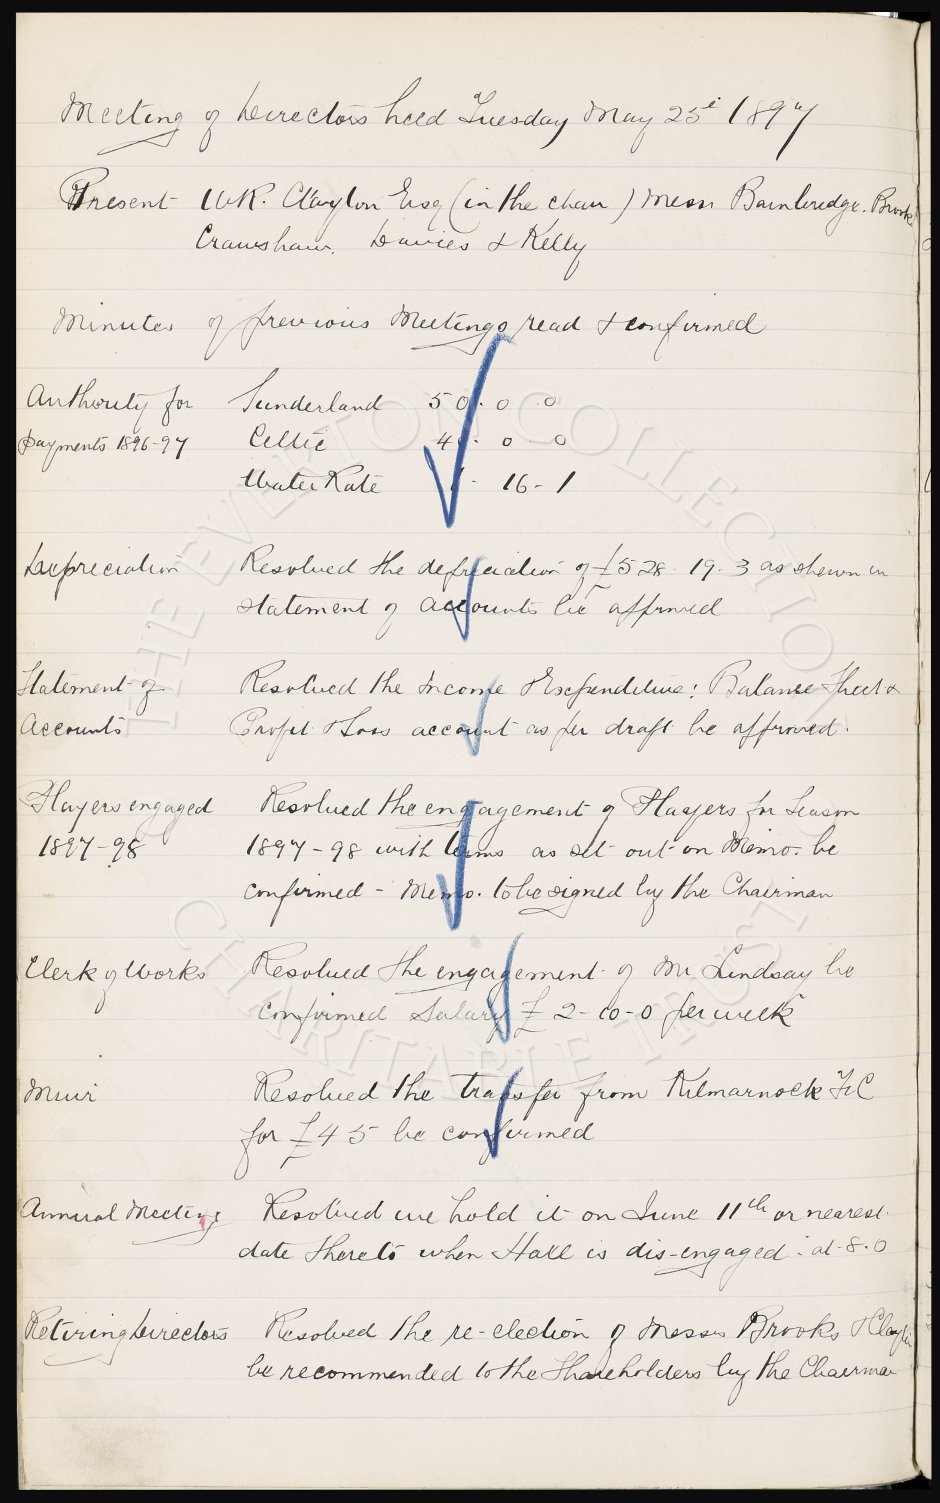 Meeting of Directors held Tuesday May 25th 1897
Present W.R. Clayton Esq (in the chair) Messrs Bainbridge. Brooks
Crawshaw. Davies & Kelly
Minutes of previous Meetings read & confirmed
Authority for Sunderland 50. 0. 0
payments 1896-97 Celtic 40. 0. 0
Water Rate 16-1
Depreciation Resolved the depreciation of £528. 19. 3 as shewn in
statement of accounts be affirmed
Statement of Resolved the Income & Expenditure: Balance Sheet &
Accounts Profit & Loss account as per draft be approved.
Players engaged Resolved the engagement of Players for Season
1897-98 1897-98 with terms as set out on Memo. be
confirmed - Memo. to be signed by the Chairman
Clerk of Works Resolved the engagement of Mr Lindsay be
confirmed Salary £2-10-0 per week
Muir Resolved the transfer from Kilmarnock F.C
for £45 be confirmed
Annual Meeting Resolved we hold it on June 11th or nearest
date thereto when Hall is dis-engaged - at 8.0
Retiring Directors Resolved the re-election of Messrs Brooks & Clayton
be recommended to the Shareholders by the Chairman
THE EVERTON COLLECTION
CHARITABLE TRUST